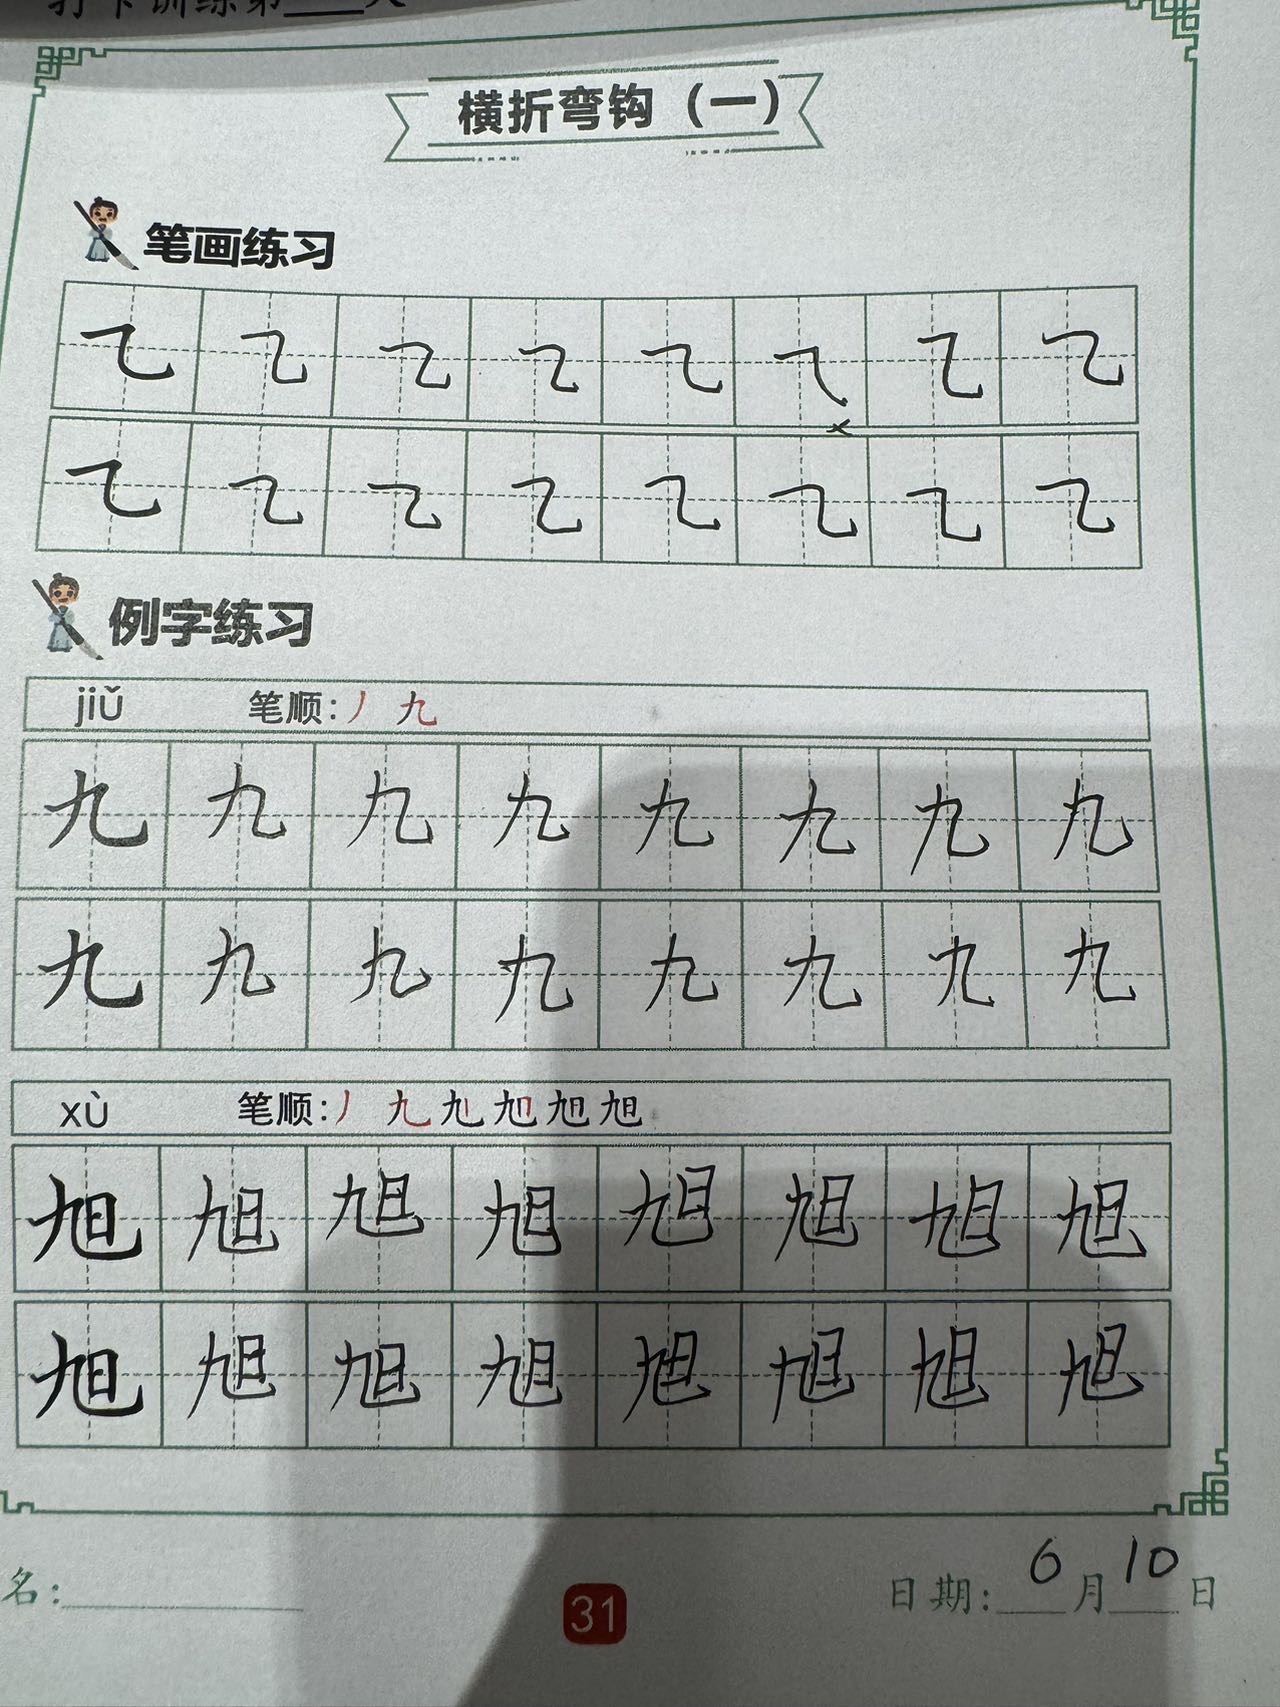 打卡训练第___天
横折弯钩（一）
笔画练习
㇈ ㇈ ㇈ ㇈ ㇈ ㇈ ㇈ ㇈
㇈ ㇈ ㇈ ㇈ ㇈ ㇈ ㇈ ㇈
例字练习
jiǔ 笔顺:丿 九
九 九 九 九 九 九 九 九
九 九 九 九 九 九 九 九
xù 笔顺:丿 九 旭 旭 旭 旭
旭 旭 旭 旭 旭 旭 旭 旭
旭 旭 旭 旭 旭 旭 旭 旭
名:
日期: 6月10日
31